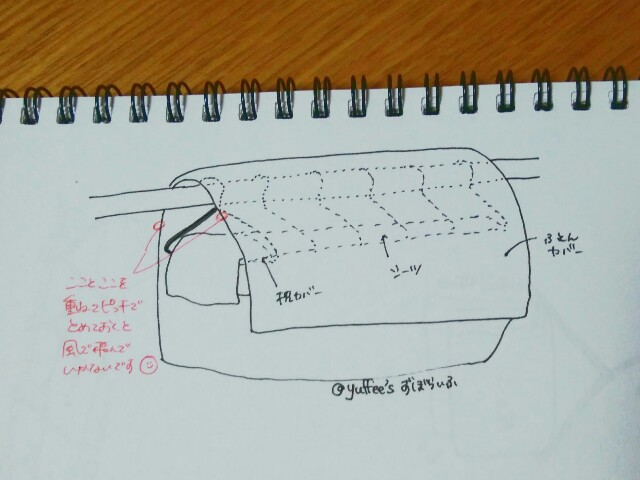 ふとん
カバー
シーツ
枕カバー
こことここを
重ねてピンチで
とめておくと
風で飛んで
いかないです
@yuffee's ずぼらいふ